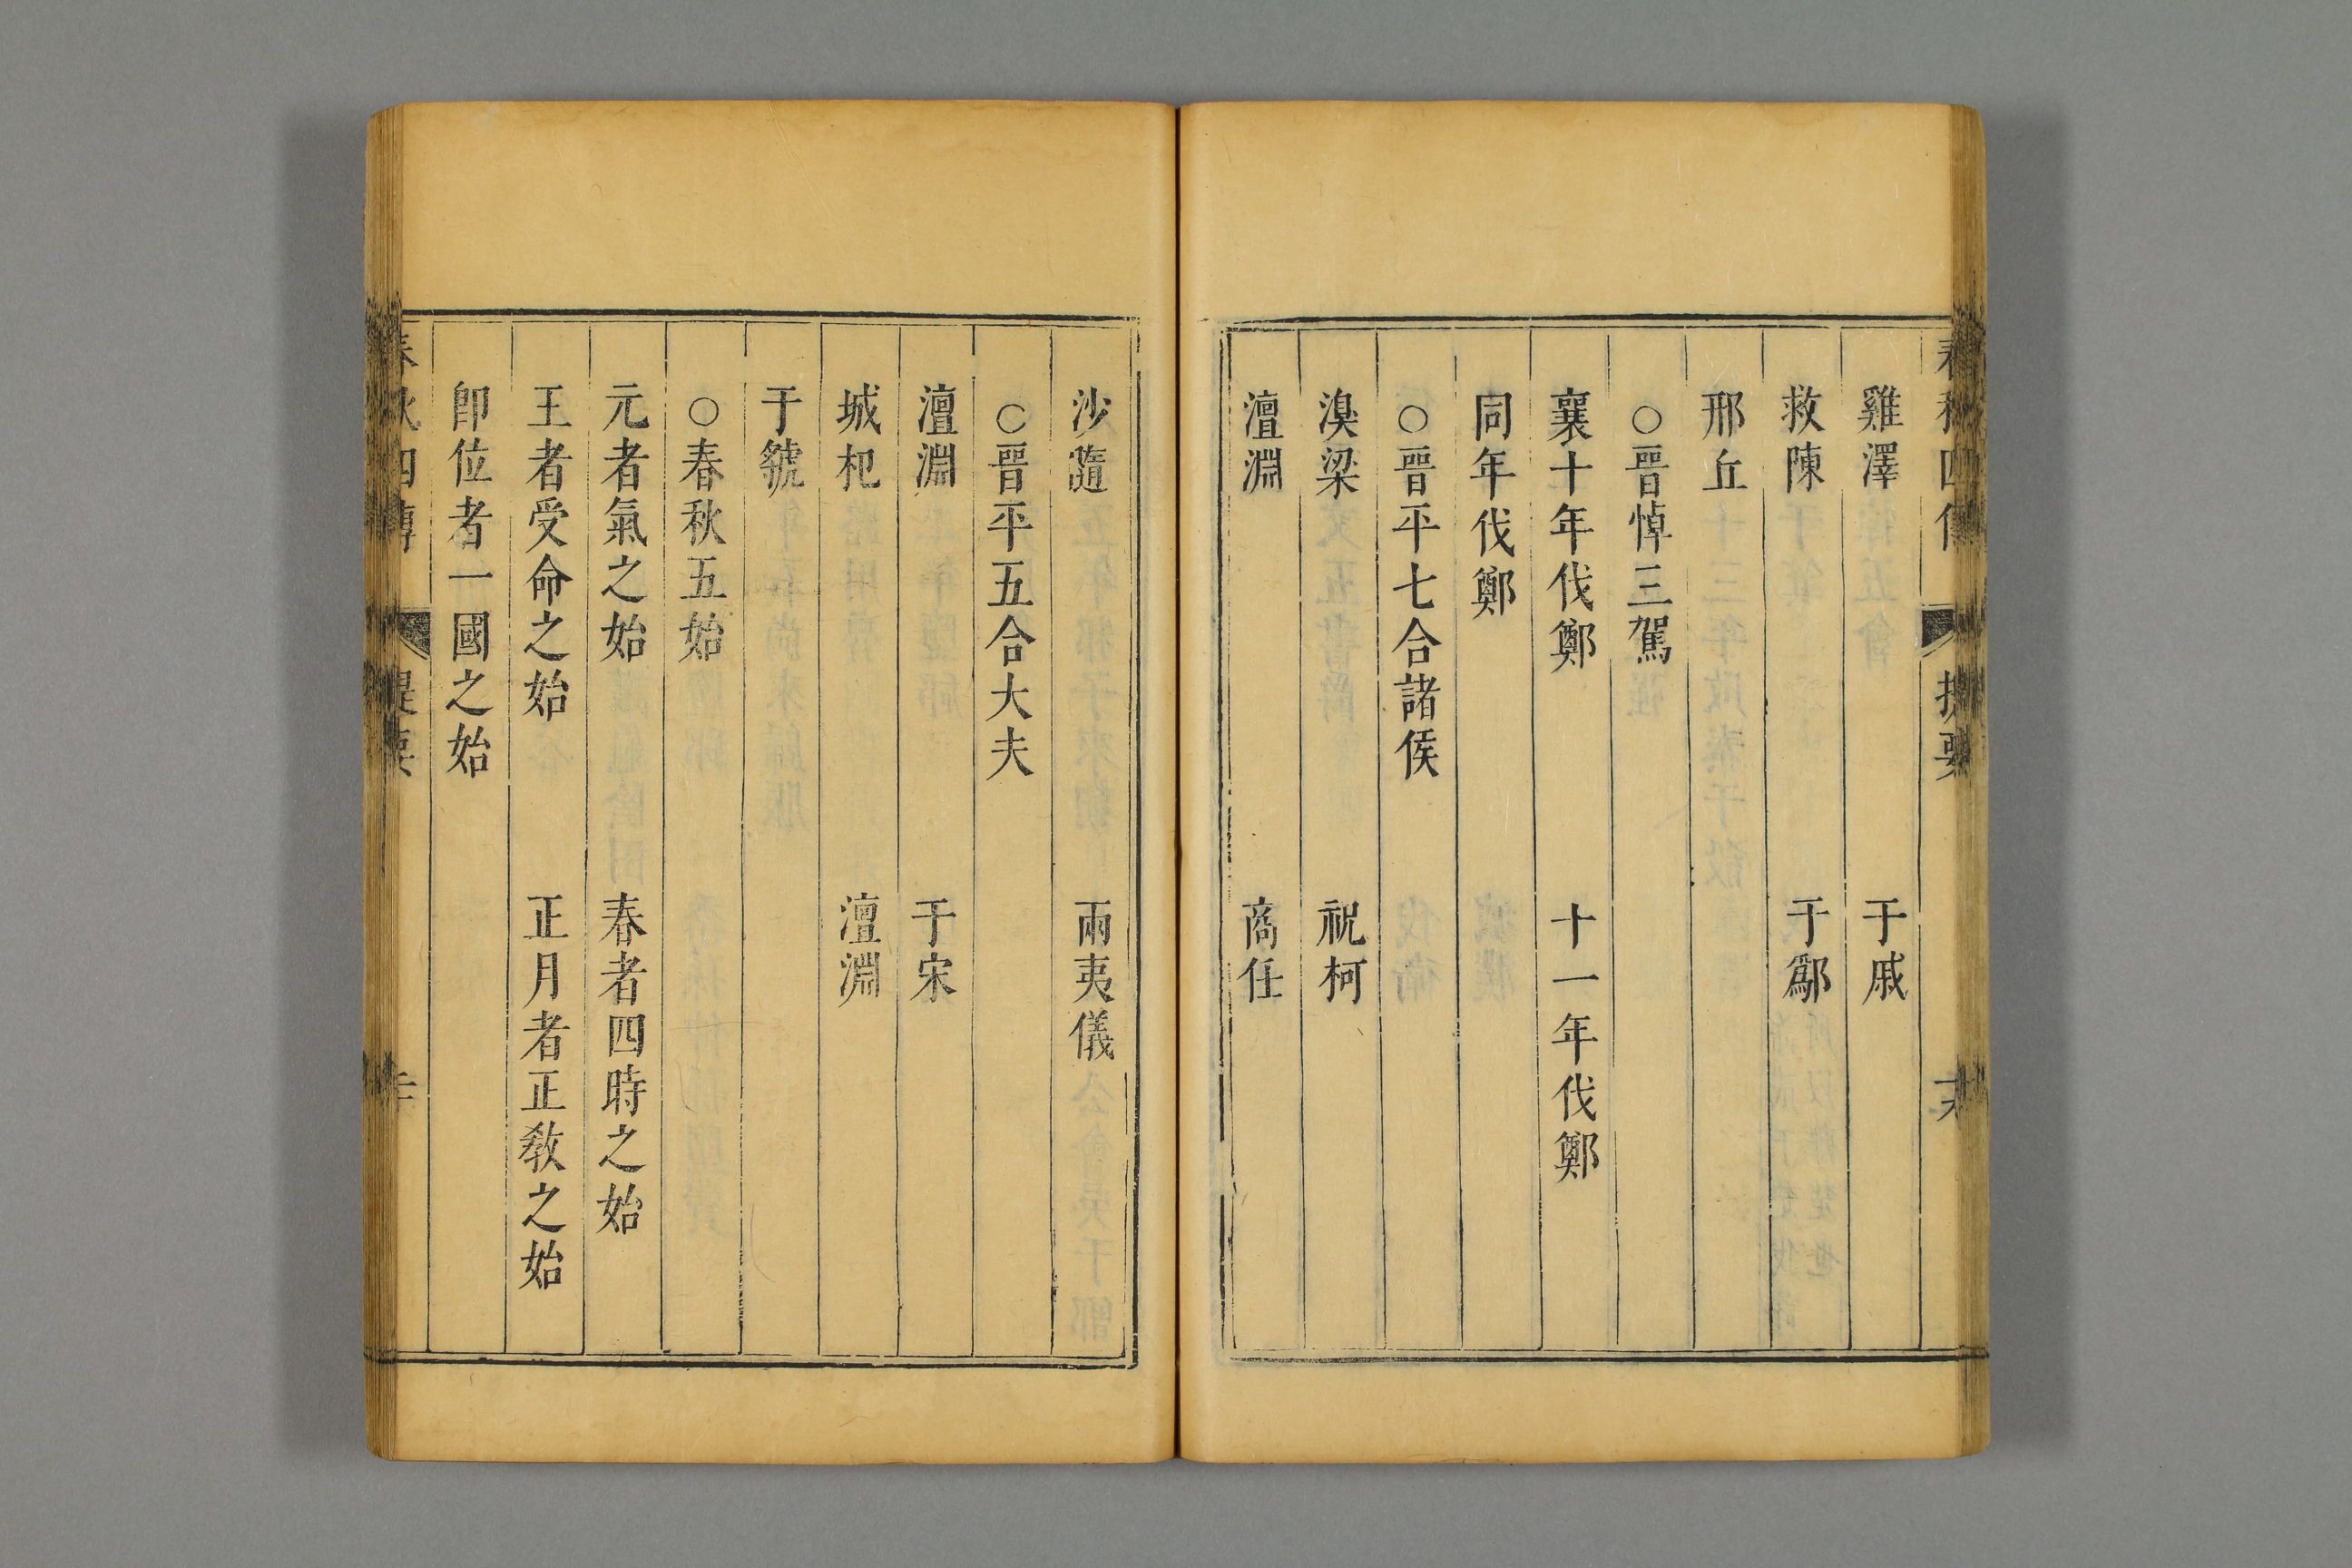 雞澤 于戚
救陳 于鄬
邢丘
○晉悼三駕
襄十年伐鄭 十一年伐鄭
同年伐鄭
○晉平七合諸侯
湨梁 祝柯
澶淵 商任
沙隨 兩夷儀
○晉平五合大夫
澶淵 于宋
城杞 澶淵
于虢
○春秋五始
元者氣之始 春者四時之始
王者受命之始 正月者正教之始
卽位者一國之始
春秋四傳 提要